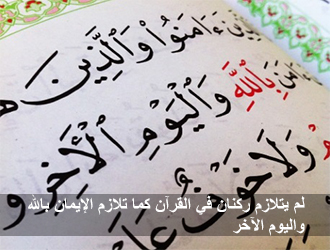 ءَامَنُوا۟ وَٱلَّذِينَ
بِٱللَّهِ وَٱلْيَوْمِ ٱلْأَخِرِ
وَلَا خَوْفٌ
لم يتلازم ركنان في القرآن كما تلازم الإيمان بالله
واليوم الآخر